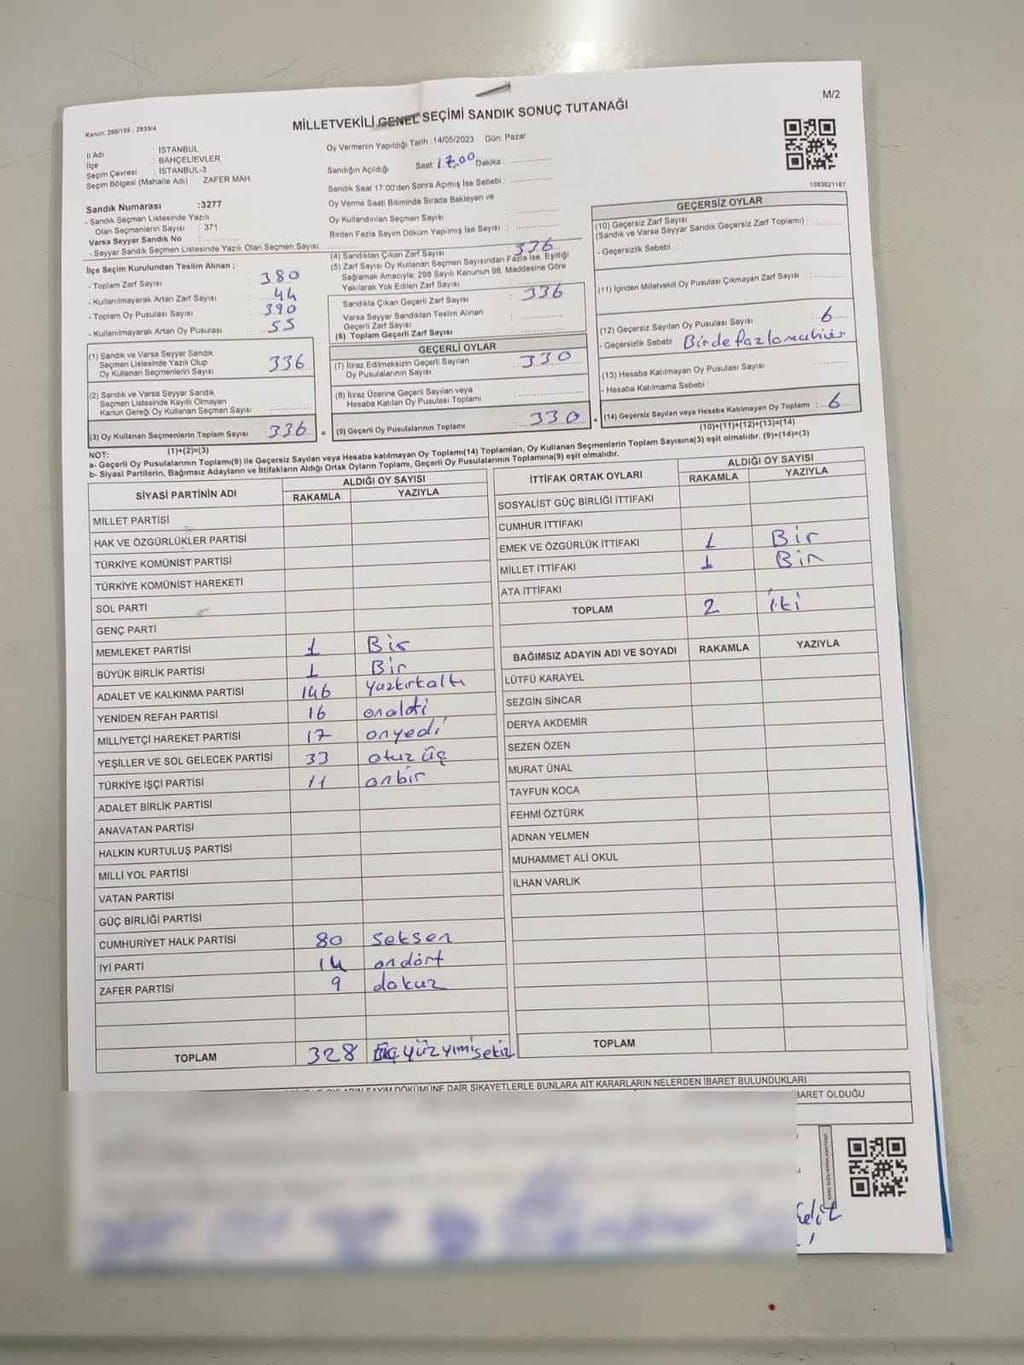 M/2
MİLLETVEKİLİ GENEL SEÇİMİ SANDIK SONUÇ TUTANAĞI
Kanun: 298/105 , 2839/4
İl Adı : İSTANBUL
İlçe : BAHÇELİEVLER
Seçim Çevresi : İSTANBUL-3
Seçim Bölgesi (Mahalle Adı) : ZAFER MAH.
Sandık Numarası :3277
- Sandık Seçmen Listesinde Yazılı
Olan Seçmenlerin Sayısı : 371
Varsa Seyyar Sandık No :
- Seyyar Sandık Seçmen Listesinde Yazılı Olan Seçmen Sayısı :
Oy Vermenin Yapıldığı Tarih :14/05/2023 Gün: Pazar
Sandığın Açıldığı Saat: 17.00 Dakika :
Sandık Saat 17.00'den Sonra Açılmış İse Sebebi :
Oy Verme Saati Bitiminde Sırada Bekleyen ve
Oy Kullandırılan Seçmen Sayısı :
Birden Fazla Sayım Döküm Yapılmış İse Sayısı :
1083621187
İlçe Seçim Kurulundan Teslim Alınan ;
- Toplam Zarf Sayısı : 380
- Kullanılmayarak Artan Zarf Sayısı : 44
- Toplam Oy Pusulası Sayısı : 390
- Kullanılmayarak Artan Oy Pusulası : 55
(1) Sandık ve Varsa Seyyar Sandık
Seçmen Listesinde Yazılı Olup
Oy Kullanan Seçmenlerin Sayısı : 336
(2) Sandık ve Varsa Seyyar Sandık
Seçmen Listesinde Kayıtlı Olmayan
Kanun Gereği Oy Kullanan Seçmen Sayısı
(3) Oy Kullanan Seçmenlerin Toplam Sayısı : 336
(1)+(2)=(3)
(4) Sandıktan Çıkan Zarf Sayısı : 336
(5) Zarf Sayısı Oy Kullanan Seçmen Sayısından Fazla İse, Eşitliği
Sağlamak Amacıyla, 298 Sayılı Kanunun 98. Maddesine Göre
Yakılarak Yok Edilen Zarf Sayısı :
Sandıkta Çıkan Geçerli Zarf Sayısı : 336
Varsa Seyyar Sandıktan Teslim Alınan
Geçerli Zarf Sayısı :
(6) Toplam Geçerli Zarf Sayısı :
GEÇERLİ OYLAR
(7) İtiraz Edilmeksizin Geçerli Sayılan
Oy Pusulalarının Sayısı : 330
(8) İtiraz Üzerine Geçerli Sayılan veya
Hesaba Katılan Oy Pusulası Toplamı :
(9) Geçerli Oy Pusulalarının Toplamı : 330
GEÇERSİZ OYLAR
(10) Geçersiz Zarf Sayısı
(Sandık ve Varsa Seyyar Sandık Geçersiz Zarf Toplamı)
- Geçersizlik Sebebi :
(11) İçinden Milletvekili Oy Pusulası Çıkmayan Zarf Sayısı :
(12) Geçersiz Sayılan Oy Pusulası Sayısı : 6
- Geçersizlik Sebebi :
(13) Hesaba Katılmayan Oy Pusulası Sayısı
- Hesaba Katılmama Sebebi :
(14) Geçersiz Sayılan veya Hesaba Katılmayan Oy Toplamı : 6
(10)+(11)+(12)+(13)=(14)
NOT:
a- Geçerli Oy Pusulalarının Toplamı(9) ile Geçersiz Sayılan veya Hesaba katılmayan Oy Toplamı(14) Toplamları, Oy Kullanan Seçmenlerin Toplam Sayısına(3) eşit olmalıdır. (9)+(14)=(3)
b- Siyasi Partilerin, Bağımsız Adayların ve İttifakların Aldığı Ortak Oyların Toplamı, Geçerli Oy Pusulalarının Toplamına(9) eşit olmalıdır.
SİYASİ PARTİNİN ADI ALDIĞI OY SAYISI
RAKAMLA YAZIYLA
MİLLET PARTİSİ
HAK VE ÖZGÜRLÜKLER PARTİSİ
TÜRKİYE KOMÜNİST PARTİSİ
TÜRKİYE KOMÜNİST HAREKETİ
SOL PARTİ
GENÇ PARTİ
MEMLEKET PARTİSİ 1 Bir
BÜYÜK BİRLİK PARTİSİ 1 Bir
ADALET VE KALKINMA PARTİSİ 146 yüzkırkaltı
YENİDEN REFAH PARTİSİ 16 onaltı
MİLLİYETÇİ HAREKET PARTİSİ 17 onyedi
YEŞİLLER VE SOL GELECEK PARTİSİ 33 otuz üç
TÜRKİYE İŞÇİ PARTİSİ 11 onbir
ADALET BİRLİK PARTİSİ
ANAVATAN PARTİSİ
HALKIN KURTULUŞ PARTİSİ
MİLLİ YOL PARTİSİ
VATAN PARTİSİ
GÜÇ BİRLİĞİ PARTİSİ
CUMHURİYET HALK PARTİSİ 80 seksen
İYİ PARTİ 14 ondört
ZAFER PARTİSİ 9 dokuz
TOPLAM 328 üçyüzyimisekiz
İTTİFAK ORTAK OYLARI ALDIĞI OY SAYISI
RAKAMLA YAZIYLA
SOSYALİST GÜÇ BİRLİĞİ İTTİFAKI
CUMHUR İTTİFAKI
EMEK VE ÖZGÜRLÜK İTTİFAKI 1 Bir
MİLLET İTTİFAKI 1 Bir
ATA İTTİFAKI
TOPLAM 2 iki
BAĞIMSIZ ADAYIN ADI VE SOYADI RAKAMLA YAZIYLA
LÜTFÜ KARAYEL
SEZGİN SİNCAR
DERYA AKDEMİR
SEZEN ÖZEN
MURAT ÜNAL
TAYFUN KOCA
FEHMİ ÖZTÜRK
ADNAN YELMEN
MUHAMMET ALİ OKUL
İLHAN VARLIK
TOPLAM
SAYIM DÖKÜMÜNE DAİR ŞİKAYETLERLE BUNLARA AİT KARARLARIN NELERDEN İBARET BULUNDUKLARI
İBARET OLDUĞU